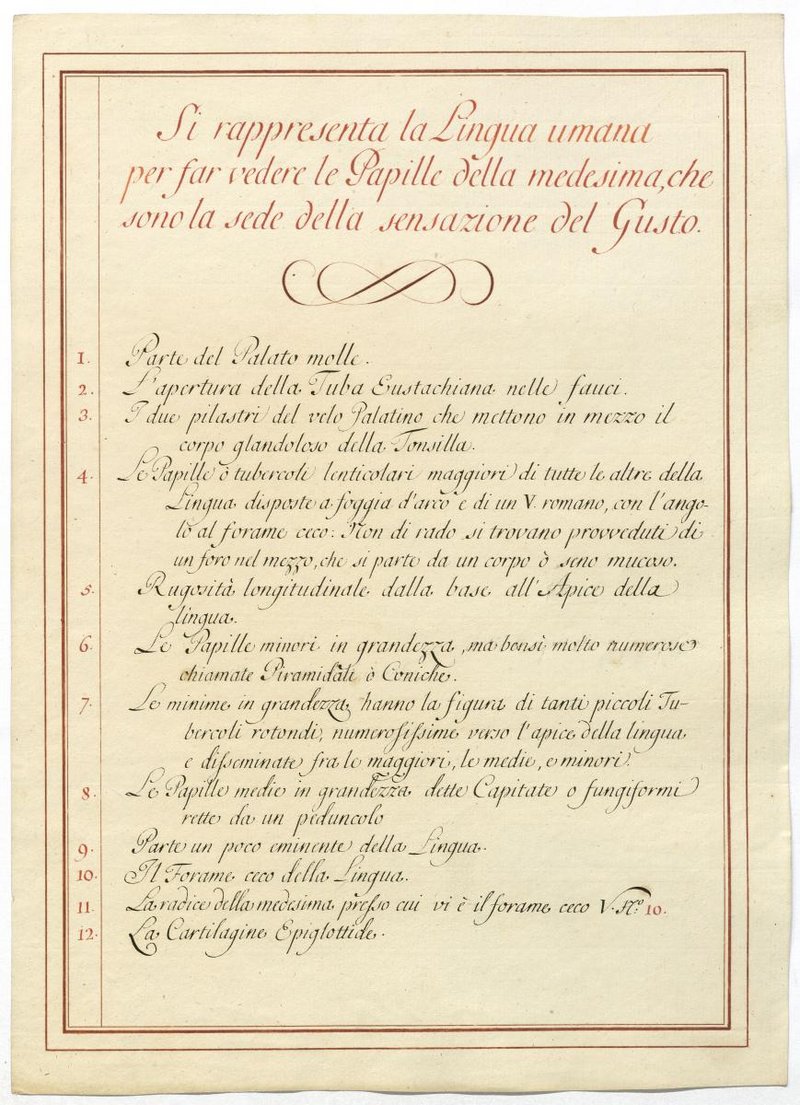 Si rappresenta la Lingua umana
per far vedere le Papille della medesima, che
sono la sede della sensazione del Gusto.
1. Parte del Palato molle.
2. L'apertura della Tuba Eustachiana nelle fauci.
3. I due pilastri del velo Palatino che mettono in mezzo il
corpo glandoloso della Tonsilla.
4. Le Papille ò tubercoli lenticolari maggiori di tutte le altre della
Lingua disposte a foggia d'arco e di un V. romano, con l'ango-
lo al forame ceco: Non di rado si trovano provveduti di
un foro nel mezzo, che si parte da un corpo ò seno mucoso.
5. Rugosità longitudinale dalla base all'Apice della
lingua.
6. Le Papille minori in grandezza, ma bensì molto numerose
chiamate Piramidali ò Coniche.
7. Le minime in grandezza hanno la figura di tanti piccoli Tu-
bercoli rotondi, numerosissime verso l'apice della lingua
e disseminate fra le maggiori, le medie, e minori.
8. Le Papille medie in grandezza dette Capitate o fungiformi
rette da un peduncolo
9. Parte un poco eminente della Lingua.
10. Il Forame ceco della Lingua.
11. La radice della medesima presso cui vi è il forame ceco V. N.º 10.
12. La Cartilagine Epiglottide.